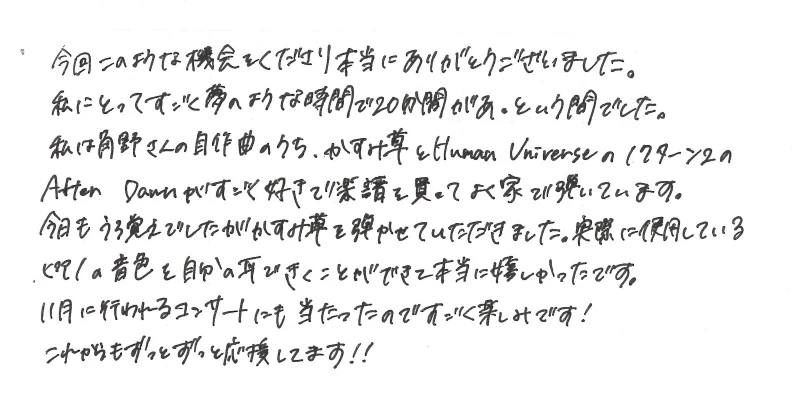 今回このような機会をくださり本当にありがとうございました。
私にとってすごく夢のような時間で20分間があっという間でした。
私は角野さんの自作曲のうち、かすみ草とHuman Universeの
After Dawnがすごく好きで楽譜を買ってよく家で弾いています。
今日もうろ覚えでしたがかすみ草を弾かせていただきました。実際に使用している
ピアノの音色を自分の耳できくことができて本当に嬉しかったです。
11月に行われるコンサートにも当たったのですごく楽しみです!
これからもずっとずっと応援してます!!